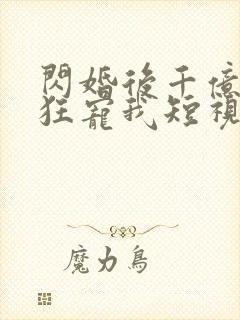 閃婚後千億
狂寵我短視
魔力鳥